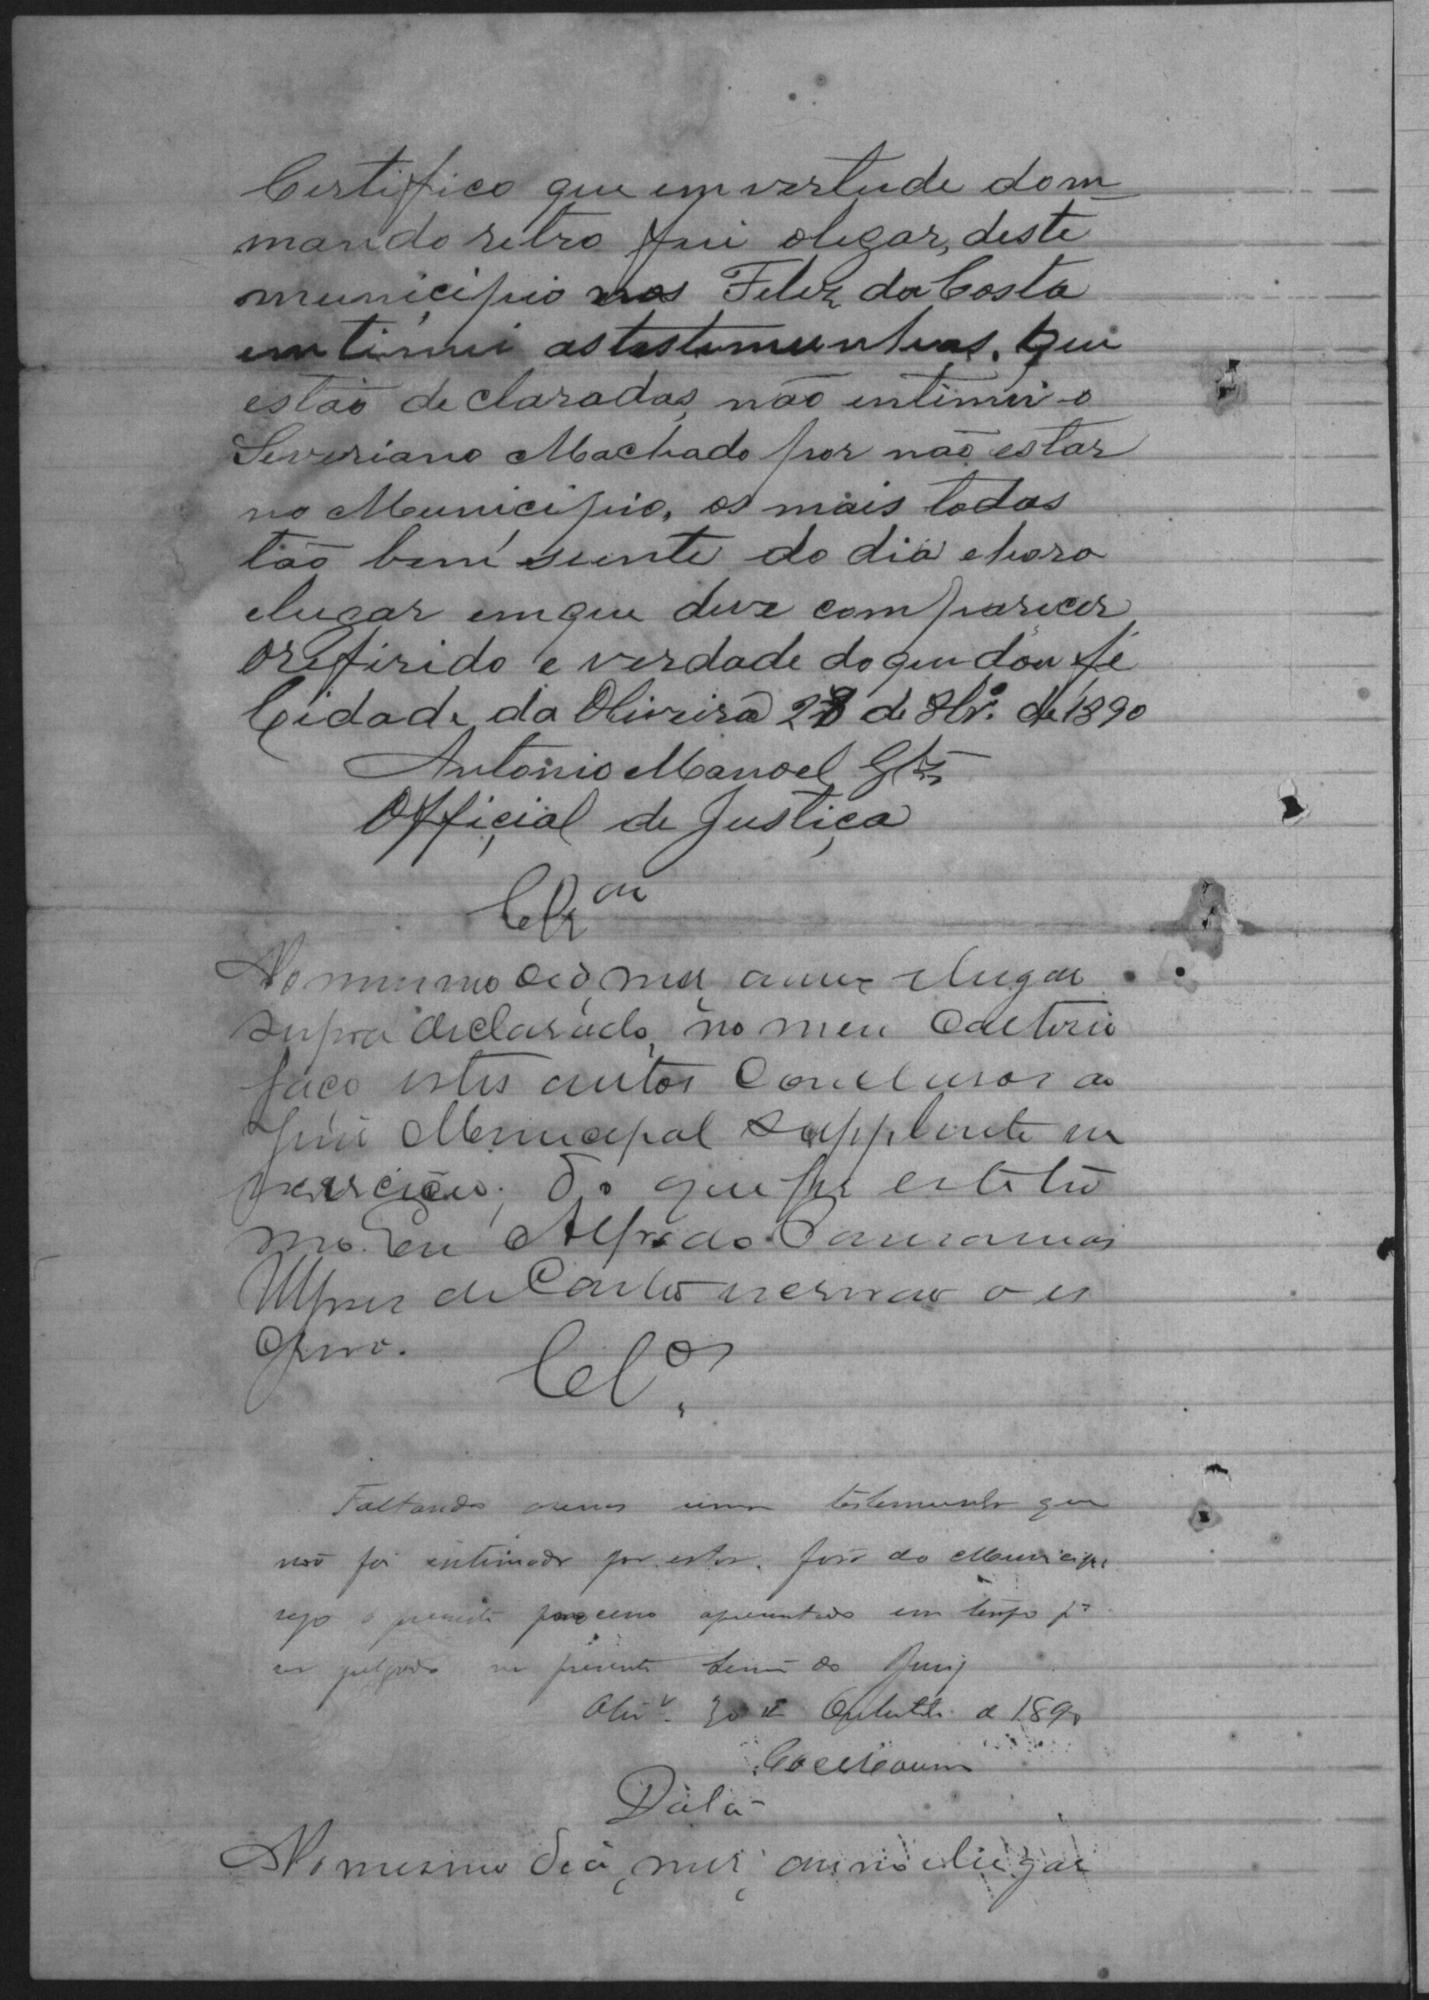 Certifico que em vertude dom
mando retro fui olugar, deste
municipio nos Feliz da Costa
emtimei as testemunhas, que
estão declaradas, não intimei o
Severiano Machado por não estar
no Municipio, os mais todas
tão bem siente do dia ehora
elugar emque deve comparecer
orefirido e verdade doque dou fé
Cidade da Oliveira 28 de 8br.º de 1890
Antonio Manoel Glz
Official de Justiça
Clz am
No mesmo dia, mez, anno elugar
supra declarado, no meu Cartorio
faço estes autos Conclusos ao
Juiz Municipal Supplente em
exercicio; do que fiz este ter
mo. Eu Alfredo
de Castro escrivão o es
crevo.
Cl.os
Faltando apenas uma testemunha que
não foi intimada por estar fora do Municipio
seja o presente processo apresentado em tempo p.a
ser julgado na presente sessão do Jury
Oliv.a 30 de Outubro de 1890
Data
No mesmo dia, mez, anno elugar